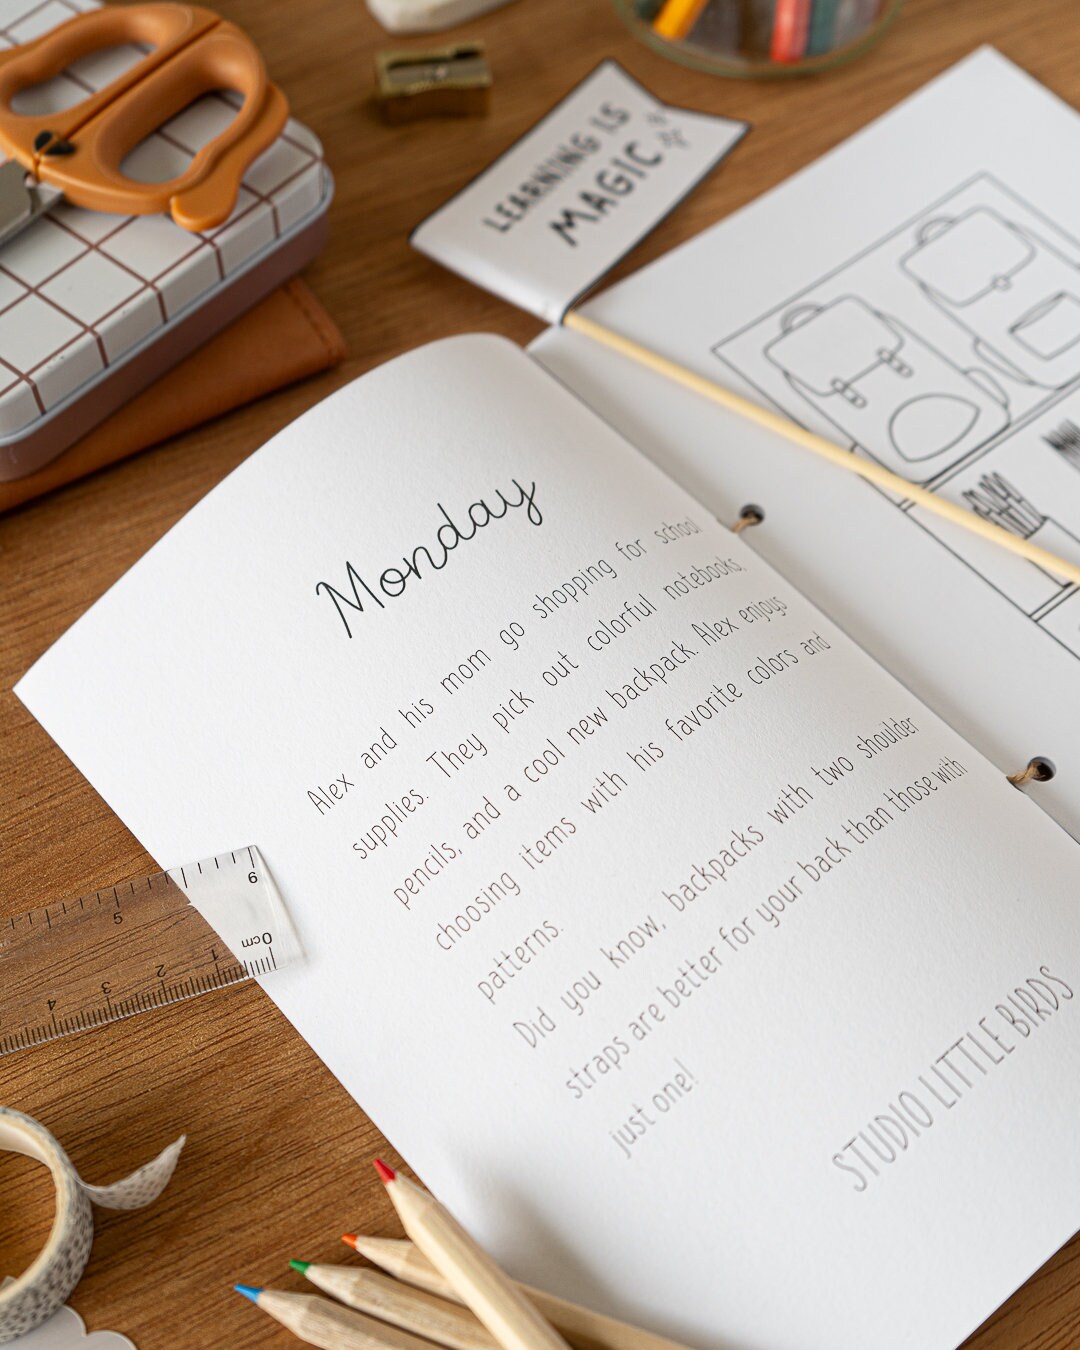 LEARNING IS
MAGIC
Monday
Alex and his mom go shopping for school
supplies. They pick out colorful notebooks,
pencils, and a cool new backpack. Alex enjoys
choosing items with his favorite colors and
patterns.
Did you know, backpacks with two shoulder
straps are better for your back than those with
just one!
STUDIO LITTLE BIRDS
6
5
0cm
1
2
3
4